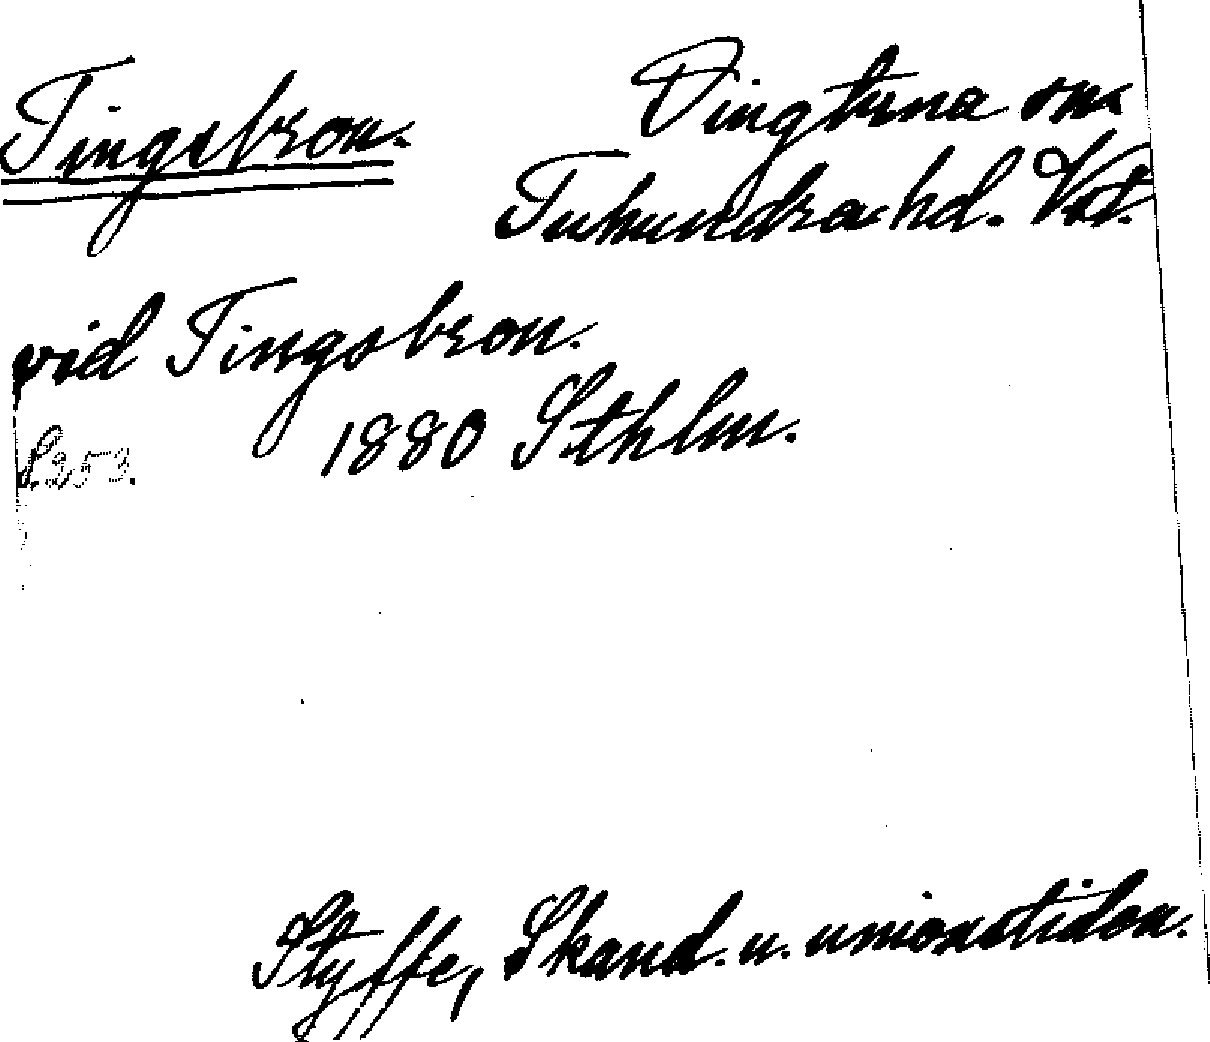 Tingsbron.
Dingtuna sn.
Tuhundra hd. Vst.
vid Tingsbron.
1880 Sthlm.
S. 253.
Styffe, Skand. u. unionstiden.